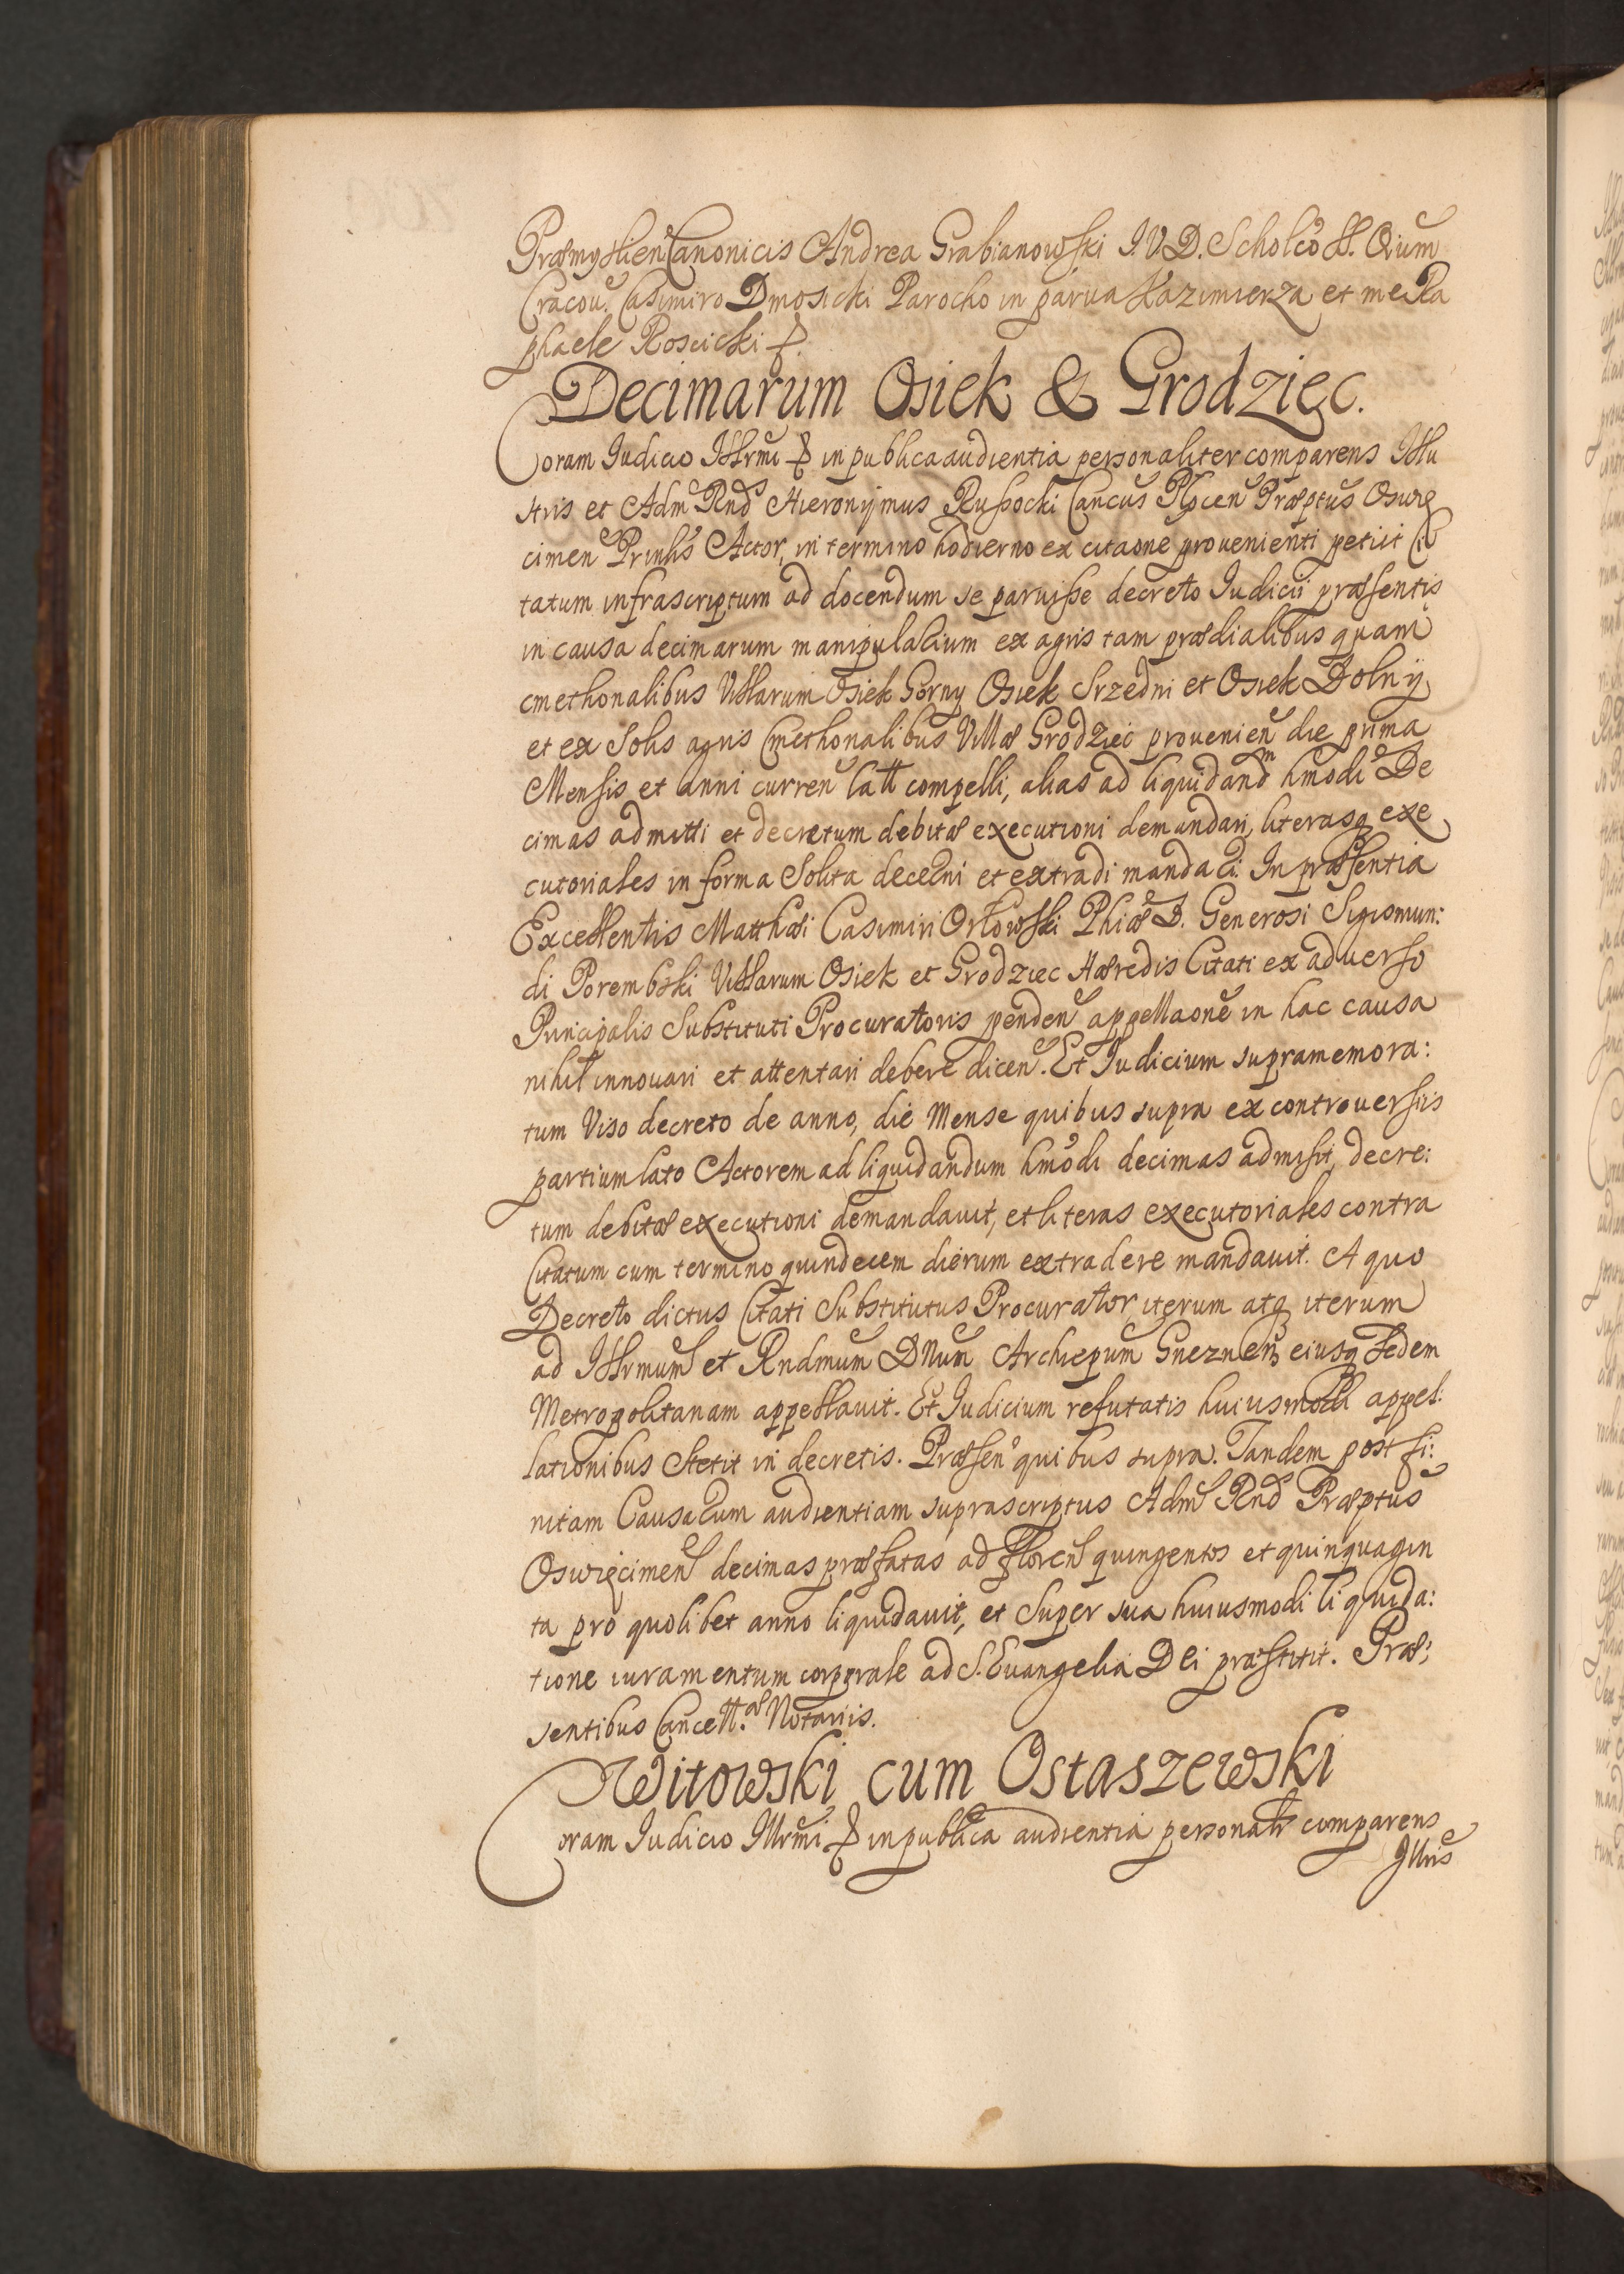 Præmyslien Canonicis Andrea Grabianowski I.V.D. Scholco SS. Oium
Cracou. Casimiro Dmosicki Parocho in parua Kazimierza et me Ra
phaele Roscicki
Decimarum Osiek & Grodziec.
Coram Iudicio Illrmi in publica audientia personaliter comparens Illu
stris et Adm Rnd Hieronymus Russocki Cancus Plocen Præptus Oswię
cimen Prinlis Actor, in termino hodierno ex citaone prouenienti petiit Ci
tatum infrascriptum ad docendum se paruisse decreto Iudicii præsentis
in causa decimarum manipulalium ex agris tam prædialibus quam
cmethonalibus Villarum Osiek Gorny Osiek Srzedni et Osiek Dolny
et ex Solis agris Cmethonalibus Villæ Grodziec prouenien die prima
Mensis et anni curren latt compelli, alias ad liquidandm hmodi De
cimas admitti et decretum debitæ executioni demandari, literasq exe
cutoriales in forma Solita decerni et extradi mandari. In præsentia
Excellentis Matthæi Casimiri Orłowski Phiæ D. Generosi Sigismun:
di Porembski Villarum Osiek et Grodziec Hæredis Citati ex aduerso
Principalis Substituti Procuratoris penden appellaone in hac causa
nihil innouari et attentari debere dicen. Et Iudicium supramemora:
tum Viso decreto de anno, die Mense quibus supra ex controuersiis
partium lato Actorem ad liquidandum hmodi decimas admisit, decre:
tum debitæ executioni demandauit, et literas executoriales contra
Citatum cum termino quindecem dierum extradere mandauit. A quo
Decreto dictus Citati Substitutus Procurator iterum atq iterum
ad Illrmum et Rndmum DNum Archiepum Gneznen eiusq Sedem
Metropolitanam appellauit. Et Iudicium refutatis huiusmodi appel:
lationibus Stetit in decretis. Præsen quibus supra. Tandem post fi:
nitam Causarum audientiam suprascriptus Adm Rnd Præptus
Oswięcimen decimas præfatas ad floren quingentos et quinquagin
ta pro quolibet anno liquidauit, et Super sua huiusmodi liquida:
tione iuramentum corporale ad S. Euangelia Dei præstitit. Præ:
sentibus Cancell.æ Notariis.
Witowski cum Ostaszewski
Coram Iudicio Illrmi in publica audientia personalr comparens
Illris